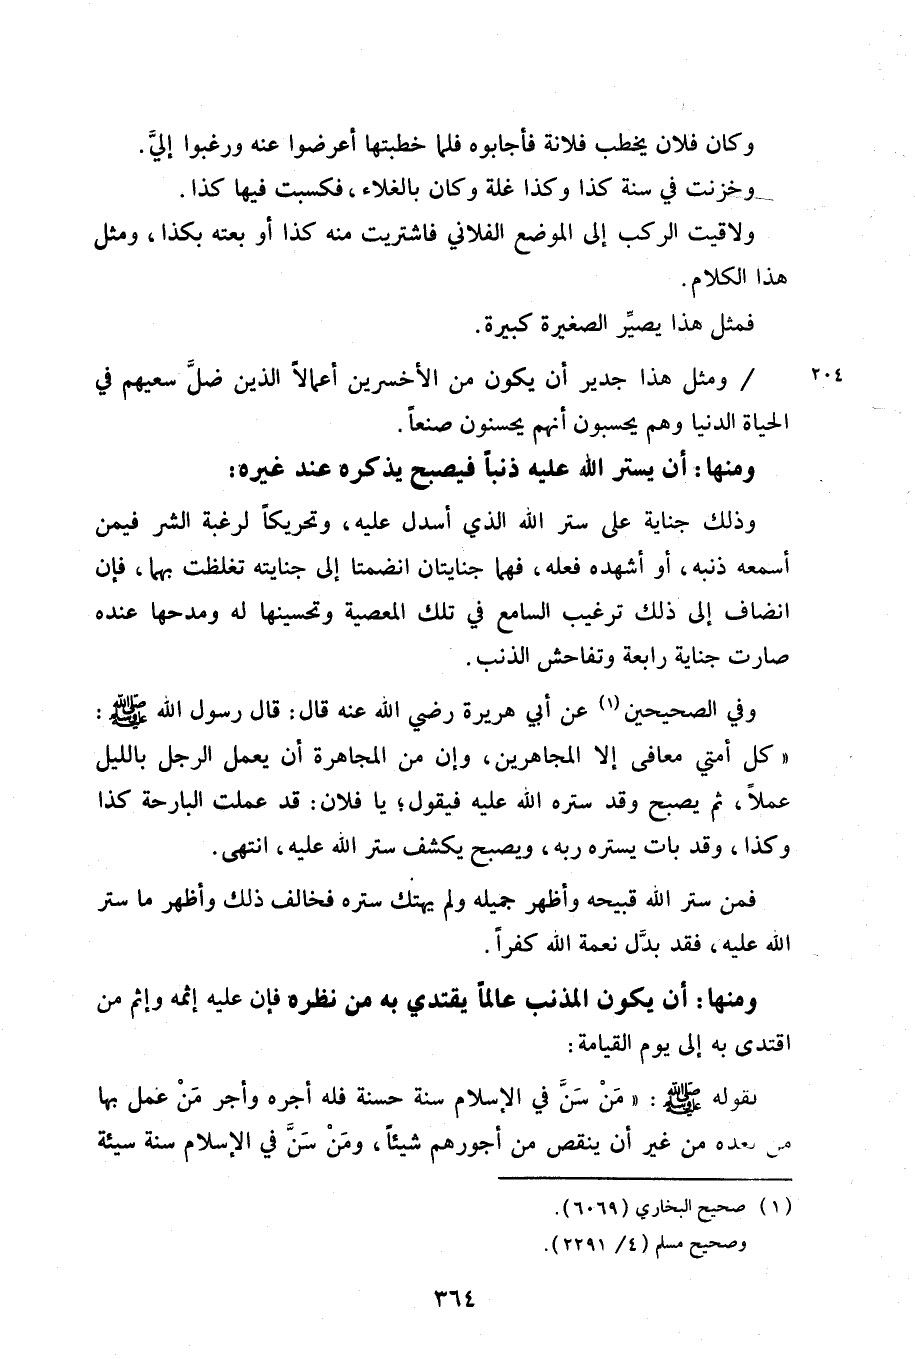 وكان فلان يخطب فلانة فأجابوه فلما خطبتها أعرضوا عنه ورغبوا إليَّ.
وخزنت في سنة كذا وكذا غلة وكان بالغلاء، فكسبت فيها كذا.
ولاقيت الركب إلى الموضع الفلاني فاشتريت منه كذا أو بعته بكذا، ومثل
هذا الكلام.
فمثل هذا يصيِّر الصغيرة كبيرة.
/ ومثل هذا جدير أن يكون من الأخسرين أعمالاً الذين ضلَّ سعيهم في ٢٠٤
الحياة الدنيا وهم يحسبون أنهم يحسنون صنعاً.
ومنها: أن يستر الله عليه ذنباً فيصبح يذكره عند غيره:
وذلك جناية على ستر الله الذي أسدل عليه، وتحريكاً لرغبة الشر فيمن
أسمعه ذنبه، أو أشهده فعله، فهما جنايتان انضمتا إلى جنايته تغلظت بهما، فإن
انضاف إلى ذلك ترغيب السامع في تلك المعصية وتحسينها له ومدحها عنده
صارت جناية رابعة وتفاحش الذنب.
وفي الصحيحين(١) عن أبي هريرة رضي الله عنه قال: قال رسول الله ﷺ:
« كل أمتي معافى إلا المجاهرين، وإن من المجاهرة أن يعمل الرجل بالليل
عملاً، ثم يصبح وقد ستره الله عليه فيقول؛ يا فلان: قد عملت البارحة كذا
وكذا، وقد بات يستره ربه، ويصبح يكشف ستر الله عليه، انتهى.
فمن ستر الله قبيحه وأظهر جميله ولم يهتك ستره فخالف ذلك وأظهر ما ستر
الله عليه، فقد بدَّل نعمة الله كفراً.
ومنها: أن يكون المذنب عالماً يقتدي به من نظره فإن عليه إثمه وإثم من
اقتدى به إلى يوم القيامة:
بقوله ﷺ: « مَنْ سَنَّ في الإسلام سنة حسنة فله أجره وأجر مَنْ عمل بها
من بعده من غير أن ينقص من أجورهم شيئاً، ومَنْ سَنَّ في الإسلام سنة سيئة
(١) صحيح البخاري (٦٠٦٩).
وصحيح مسلم (٤/ ٢٢٩١).
٣٦٤